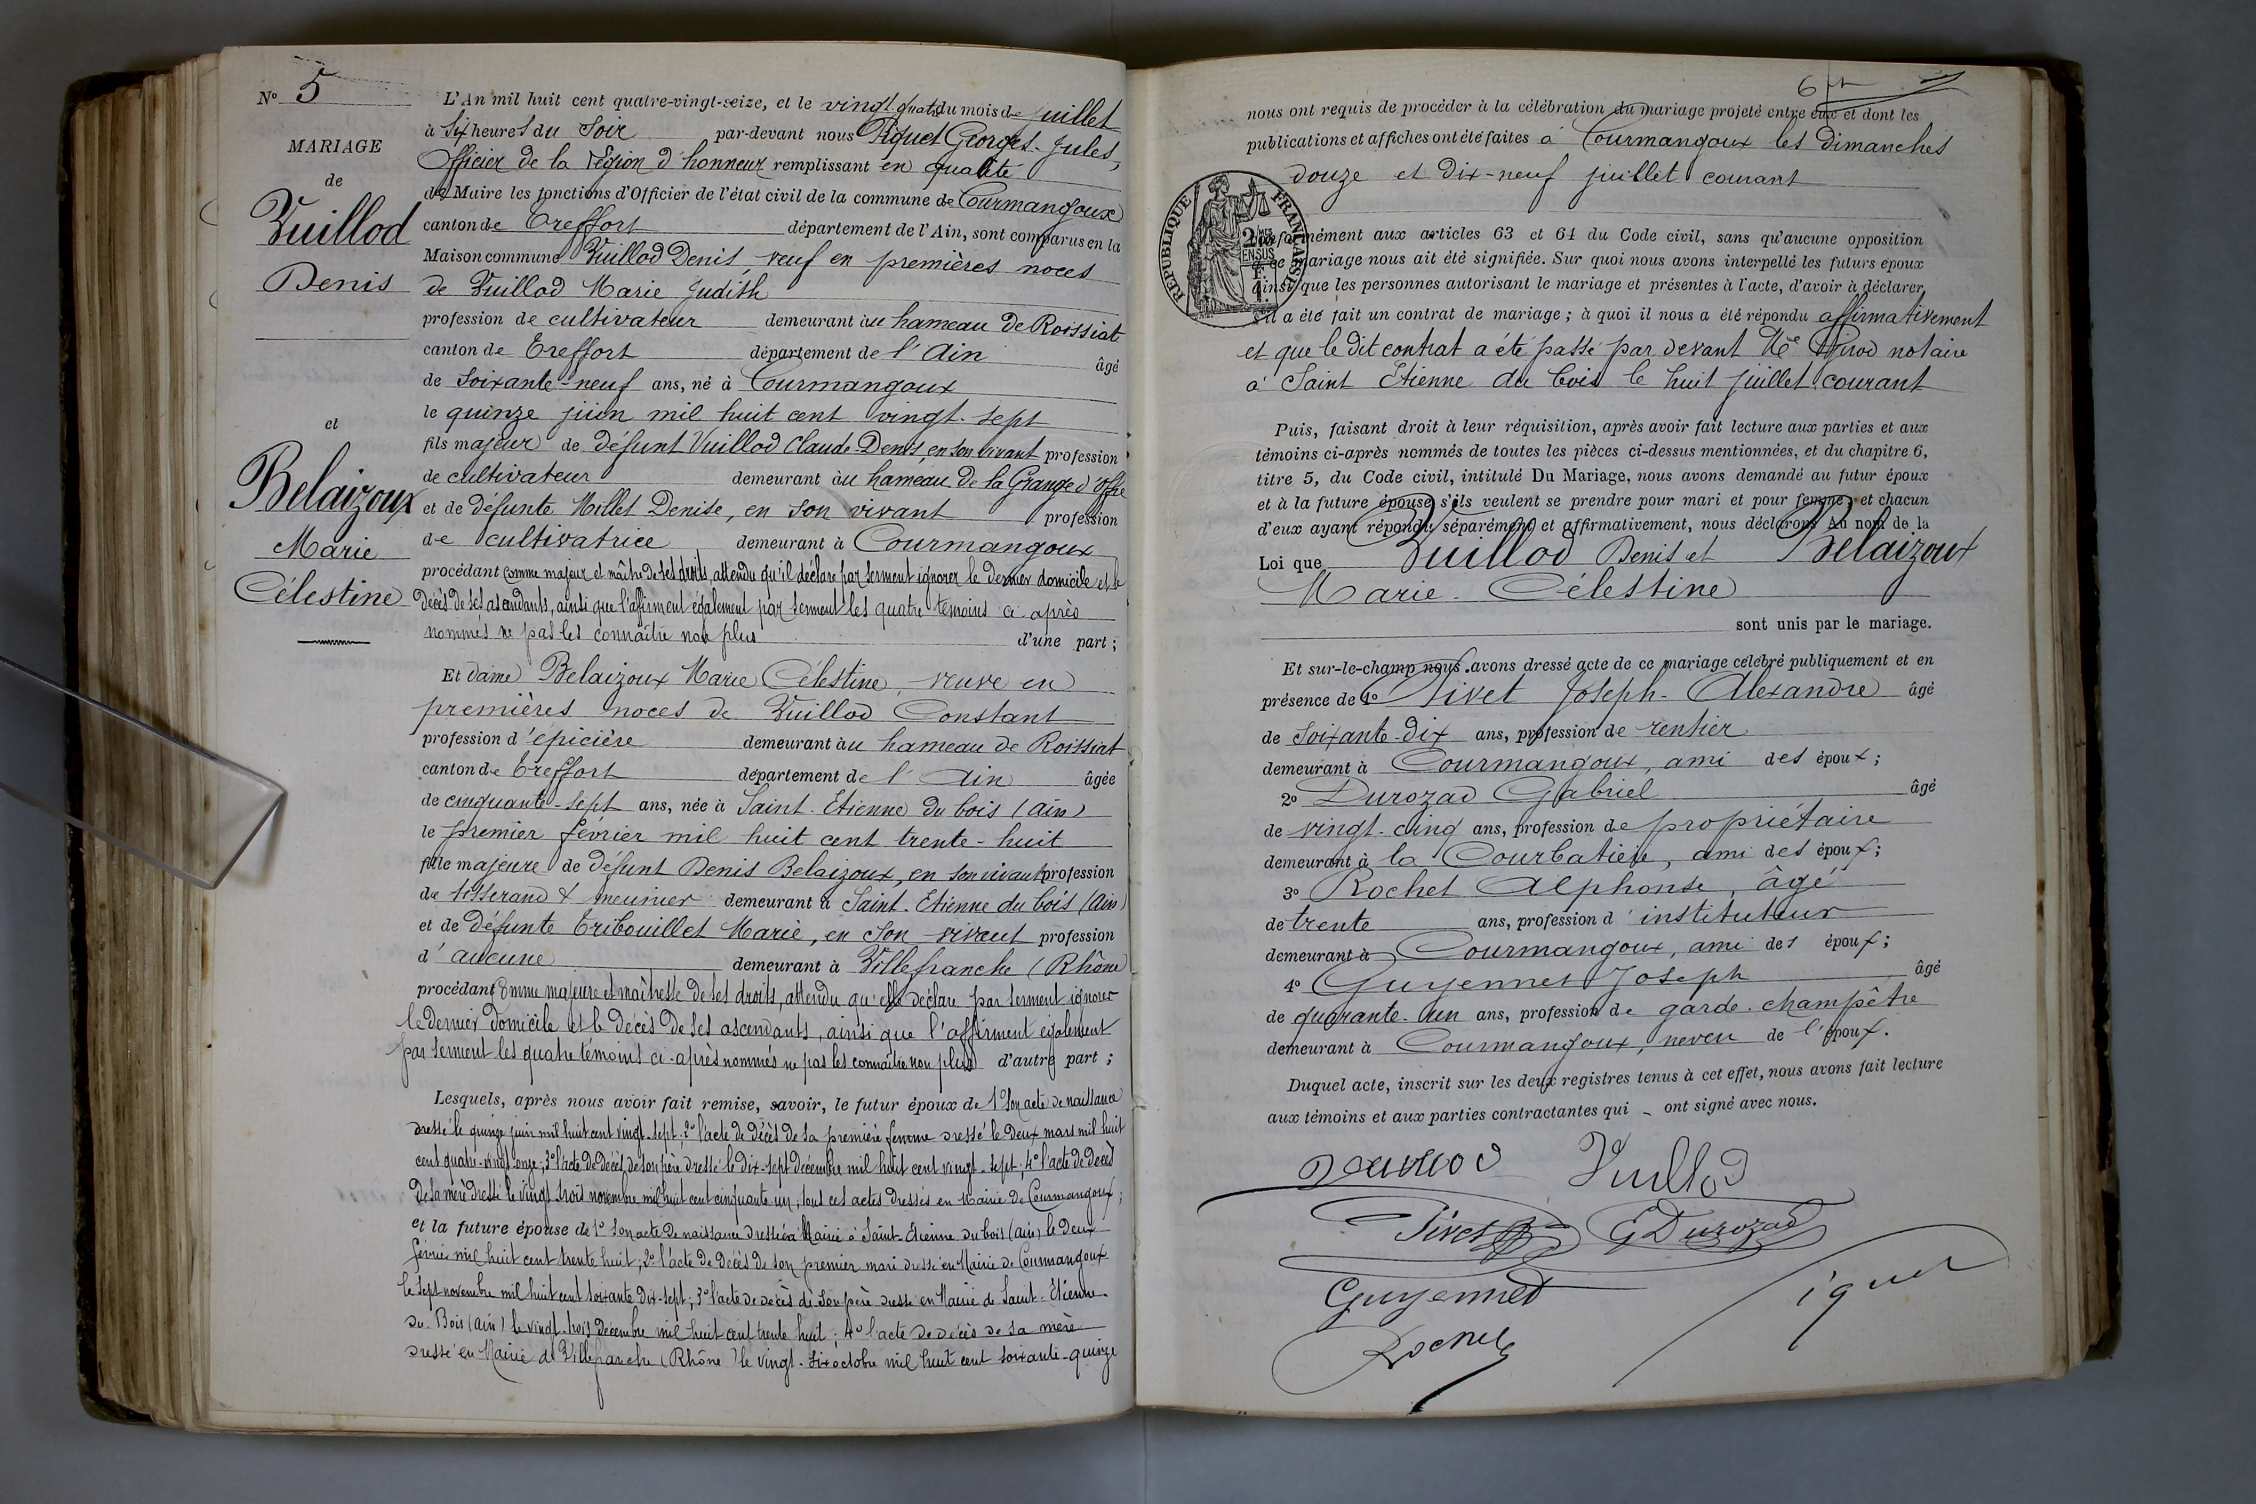 N° 5
MARIAGE
de
Vuillod
Denis
et
Belaizoux
Marie
Célestine
L'An mil huit cent quatre-vingt-seize, et le vingt quatre du mois de juillet
à six heures du soir par-devant nous Piquet Georges-Jules,
Officier de la Légion d'honneur remplissant en qualité
de Maire les fonctions d'Officier de l'état civil de la commune de Courmangoux
canton de Treffort département de l'Ain, sont comparus en la
Maison commune Vuillod Denis, veuf en premières noces
de Vuillod Marie Judith
profession de cultivateur demeurant au hameau de Roissiat
canton de Treffort département de l'Ain âgé
de soixante-neuf ans, né à Courmangoux
le quinze juin mil huit cent vingt-sept
fils majeur de défunt Vuillod Claude-Denis, en son vivant profession
de cultivateur demeurant au hameau de la Grange d'
et de défunte Millet Denise, en son vivant profession
de cultivatrice demeurant à Courmangoux
procédant comme majeur et maître de ses droits, attendu qu'il déclare par serment ignorer le dernier domicile et le
décès de ses ascendants, ainsi que l'affirment également par serment les quatre témoins ci-après
nommés ne pas les connaître non plus d'une part ;
Et dame Belaizoux Marie Célestine, veuve en
premières noces de Vuillod Constant
profession d'épicière demeurant au hameau de Roissiat
canton de Treffort département de l'Ain âgée
de cinquante-sept ans, née à Saint-Etienne du bois (Ain)
le premier février mil huit cent trente-huit
fille majeure de défunt Denis Belaizoux, en son vivant profession
de tisserand & meunier demeurant à Saint-Etienne du bois (Ain)
et de défunte Tribouillet Marie, en son vivant profession
d'aucune demeurant à Villefranche (Rhône)
procédant comme majeure et maîtresse de ses droits, attendu qu'elle déclare par serment ignorer
le dernier domicile et le décès de ses ascendants, ainsi que l'affirment également
par serment les quatre témoins ci-après nommés ne pas les connaître non plus d'autre part ;
Lesquels, après nous avoir fait remise, savoir, le futur époux de 1° son acte de naissance
dressé le quinze juin mil huit cent vingt-sept ; 2° l'acte de décès de sa première femme dressé le deux mars mil huit
cent quatre-vingt-onze ; 3° l'acte de décès de son père dressé le dix-sept décembre mil huit cent vingt-sept ; 4° l'acte de décès
de sa mère dressé le vingt trois novembre mil huit cent cinquante un ; tous ces actes dressés en Mairie de Courmangoux ;
et la future épouse de 1° son acte de naissance dressé à Mairie à Saint-Etienne du bois (Ain) le deux
février mil huit cent trente huit ; 2° l'acte de décès de son premier mari dressé en Mairie de Courmangoux
le sept novembre mil huit cent soixante dix-sept ; 3° l'acte de décès de son père dressé en Mairie de Saint-Etienne-
du-Bois (Ain) le vingt-trois décembre mil huit cent trente huit ; 4° l'acte de décès de sa mère
dressé en Mairie de Villefranche (Rhône) le vingt-six octobre mil huit cent soixante-quinze
nous ont requis de procéder à la célébration du mariage projeté entre eux et dont les
publications et affiches ont été faites à Courmangoux les dimanches
douze et dix-neuf juillet courant
RÉPUBLIQUE FRANÇAISE
conformément aux articles 63 et 64 du Code civil, sans qu'aucune opposition
à ce mariage nous ait été signifiée. Sur quoi nous avons interpellé les futurs époux
ainsi que les personnes autorisant le mariage et présentes à l'acte, d'avoir à déclarer
s'il a été fait un contrat de mariage ; à quoi il nous a été répondu affirmativement
et que le dit contrat a été passé par devant Me Pirod notaire
à Saint Etienne du bois le huit juillet courant
Puis, faisant droit à leur réquisition, après avoir fait lecture aux parties et aux
témoins ci-après nommés de toutes les pièces ci-dessus mentionnées, et du chapitre 6,
titre 5, du Code civil, intitulé Du Mariage, nous avons demandé au futur époux
et à la future épouse s'ils veulent se prendre pour mari et pour femme, et chacun
d'eux ayant répondu séparément et affirmativement, nous déclarons Au nom de la
Loi que Vuillod Denis et Belaizoux
Marie-Célestine
sont unis par le mariage.
Et sur-le-champ nous avons dressé acte de ce mariage célébré publiquement et en
présence de 1° Tivet Joseph-Alexandre âgé
de soixante-dix ans, profession de rentier
demeurant à Courmangoux, ami des époux ;
2° Durozad Gabriel âgé
de vingt-cinq ans, profession de propriétaire
demeurant à la Courbatière, ami des époux ;
3° Rochet Alphonse, âgé
de trente ans, profession d'instituteur
demeurant à Courmangoux, ami des époux ;
4° Guyennet Joseph âgé
de quarante-un ans, profession de garde-champêtre
demeurant à Courmangoux, neveu de l'époux.
Duquel acte, inscrit sur les deux registres tenus à cet effet, nous avons fait lecture
aux témoins et aux parties contractantes qui - ont signé avec nous.
Vuillod
Tivet G Durozad
Guyennet Piquet
Rochet